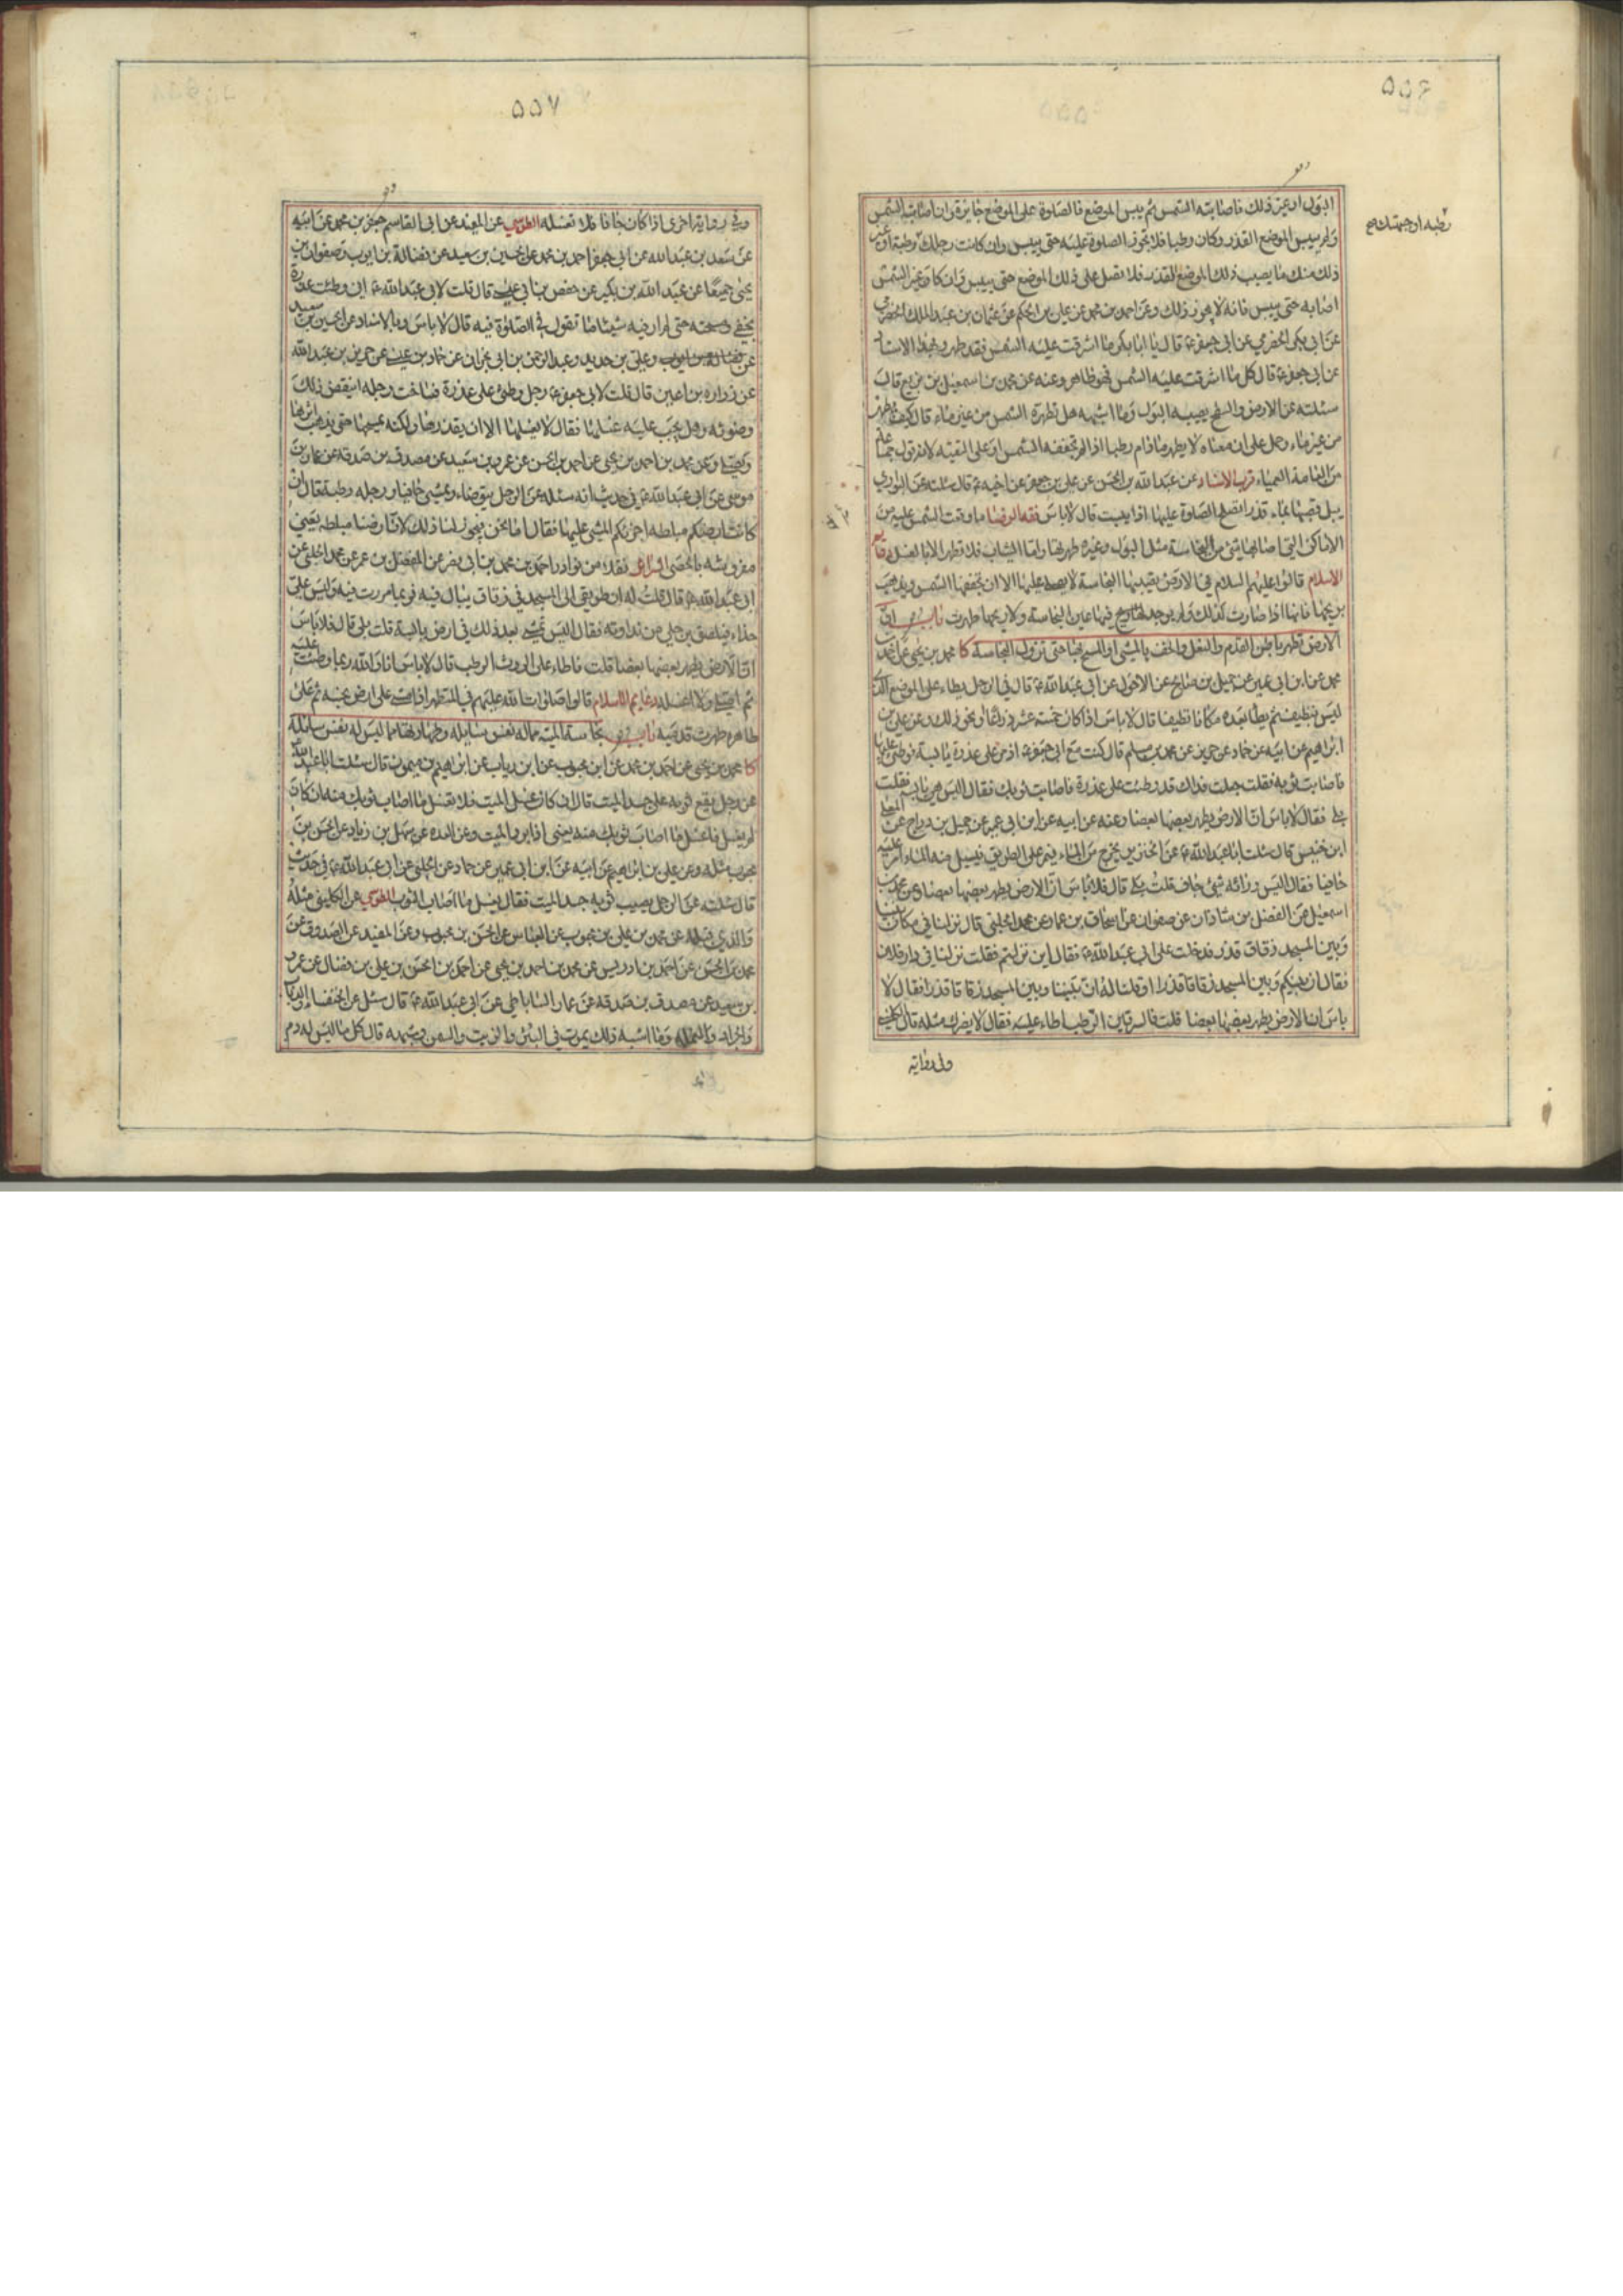 ۵۵۶
رطبه او جبهتك صح
البول او غير ذلك فاصابته الشمس ثم يبس الموضع فالصلوة على الموضع جايزة وان اصابته الشمس
ولم ييبس الموضع القذر وكان رطبا فلا تجوز الصلوة عليه حتى ييبس وان كانت رجلك رطبة او غير
ذلك منك ما يصيب ذلك الموضع القذر فلا تصل على ذلك الموضع حتى ييبس وان كان غير الشمس
اصابه حتى ييبس فانه لا يجوز ذلك وعن احمد بن محمد عن علي بن الحكم عن عثمان بن عبد الملك الحضرمي
عن ابي بكر الحضرمي عن ابي جعفر ع قال يا ابا بكر ما اشرقت عليه الشمس فقد طهر وبهذا الاسناد
عن ابي جعفر ع قال كل ما اشرقت عليه الشمس فهو طاهر وعنه عن محمد بن اسمعيل بن بزيع قال
سئلته عن الارض والسطح يصيبه البول وما اشبهه هل تطهره الشمس من غير ماء قال كيف يطهر
من غير ماء وحمل على ان معناه لا يطهر ما دام رطبا اذا لم تجففه الشمس او على التقية لانه قول جماعة
من العامة العمياء قرب الاسناد عن عبد الله بن الحسن عن علي بن جعفر عن اخيه ع قال سئلته عن البواري
يبل قصبها بماء قذر ايصلح الصلوة عليها اذا يبست قال لا باس فقه الرضا ما وقعت الشمس عليه من
الاماكن التي اصابها شئ من النجاسة مثل البول وغيره طهرتها واما الثياب فلا تطهر الا بالغسل دعائم
الاسلام قالوا عليهم السلام في الارض يصيبها النجاسة لا يصلى عليها الا ان تجففها الشمس ويذهب
بريحها فانها اذا صارت كذلك ولم يوجد فيها عين النجاسة ولا ريحها طهرت باب ان
الارض تطهر باطن القدم والنعل والخف بالمشي او المسح بها حتى تزول النجاسة كا محمد بن يحيى عن احمد بن
محمد عن ابن ابي عمير عن جميل بن صالح عن الاحول عن ابي عبد الله ع قال في الرجل يطاء على الموضع الذي
ليس بنظيف ثم يطا بعده مكانا نظيفا قال لا باس اذا كان خمسة عشر ذراعا او نحو ذلك وعن علي بن
ابراهيم عن ابيه عن حماد عن حريز عن محمد بن مسلم قال كنت مع ابي جعفر ع اذ مر على عذرة يابسة فوطئ عليها
فاصابت ثوبه فقلت جعلت فداك قد وطئت على عذرة فاصابت ثوبك فقال اليس هي يابسه فقلت
بلى فقال لا باس ان الارض يطهر بعضها بعضا وعنه عن ابيه عن ابن ابي عمير عن جميل بن دراج عن المعلى
ابن خنيس قال سئلت ابا عبد الله ع عن الخنزير يخرج من الماء فيمر على الطريق فيسيل منه الماء امر عليه
حافيا فقال اليس ورائه شئ جاف قلت بلى قال فلا باس ان الارض يطهر بعضها بعضا وعن محمد بن
اسمعيل عن الفضل بن شاذان عن صفوان عن اسحاق بن عمار عن محمد الحلبي قال نزلنا في مكان بيننا
وبين المسجد زقاق قذر فدخلت على ابي عبد الله ع فقال اين نزلتم فقلت نزلنا في دار فلان
فقال ان بينكم وبين المسجد زقاقا قذرا او قلنا له ان بيننا وبين المسجد زقاقا قذرا فقال لا
باس ان الارض يطهر بعضها بعضا قلت فالسرقين الرطب اطاء عليه فقال لا يضرك مثله قال الكليني
وفي رواية
۵۵۷
وفي رواية اخرى اذا كان جافا فلا تغسله الطوسي عن المفيد عن ابي القاسم جعفر بن محمد عن ابيه
عن سعد بن عبد الله عن ابي جعفر احمد بن محمد عن الحسين بن سعيد عن فضالة بن ايوب وصفوان بن
يحيى جميعا عن عبد الله بن بكير عن حفص بن ابي عيسى قال قلت لابي عبد الله ع ان وطئت عذرة
بخفي ومسحته حتى لم ار فيه شيئا ما تقول في الصلوة فيه قال لا باس وبالاسناد عن الحسين بن سعيد
عن فضالة بن ايوب وعلي بن حديد وعبد الرحمن بن ابي نجران عن حماد بن عيسى عن حريز بن عبد الله
عن زراره بن اعين قال قلت لابي جعفر ع رجل وطئ على عذرة فساخت رجله اينقض ذلك
وضوئه وهل يجب عليه غسلها فقال لا يغسلها الا ان يقذرها ولكنه يمسحها حتى يذهب اثرها
ويصلي وعن محمد بن احمد بن يحيى عن احمد بن الحسن عن عمرو بن سعيد عن مصدق بن صدقه عن عمار بن
موسى عن ابي عبد الله ع في حديث انه سئله عن الرجل يتوضاء ويمشي حافيا ورجله رطبة قال ان
كانت ارضكم مبلطه اجزئكم المشي عليها فقال اما نحن يجوز لنا ذلك لان ارضنا مبلطه يعني
مفروشه بالحصى السرائر نقلا من نوادر احمد بن محمد بن ابي نصر عن المفضل بن عمر عن محمد الحلبي عن
ابي عبد الله ع قال قلت له ان طريقي الى المسجد في زقاق يبال فيه فربما مررت فيه وليس علي
حذاء فيلصق برجلي من نداوته فقال اليس تمشي بعد ذلك في ارض يابسة قلت بلى قال فلا باس
ان الارض يطهر بعضها بعضا قلت فاطاء على الروث الرطب قال لا باس انا والله ربما وطئت عليه
ثم اصلي ولا اغسله دعايم الاسلام قالوا صلوات الله عليهم في المتطهر اذا مشى على ارض نجسه ثم على
طاهره طهرت قدميه باب نجاسة الميته مما له نفس سايله وطهارتها مما ليس له نفس سايله
كا محمد بن يحيى عن احمد بن محمد عن ابن محبوب عن ابن رياب عن ابراهيم بن ميمون قال سئلت ابا عبد الله ع
عن رجل يقع ثوبه على جسد الميت قال ان كان غسل الميت فلا تغسل ما اصاب ثوبك منه وان كان
لم يغسل فاغسل ما اصاب ثوبك منه يعني اذا برد الميت وعن العده عن سهل بن زياد عن الحسن بن
محبوب مثله وعن علي بن ابراهيم عن ابيه عن ابن ابي عمير عن حماد عن الحلبي عن ابي عبد الله ع في حديث
قال سئلته عن الرجل يصيب ثوبه جسد الميت فقال يغسل ما اصاب الثوب الطوسي عن الكليني مثله
والذي قبله عن محمد بن علي بن محبوب عن العباس عن الحسن بن محبوب وعن المفيد عن الصدوق عن
محمد بن الحسن عن احمد بن ادريس عن محمد بن احمد بن يحيى عن احمد بن الحسن بن علي بن فضال عن عمرو
بن سعيد عن مصدق بن صدقه عن عمار الساباطي عن ابي عبد الله ع قال سئل عن الخنفساء والذباب
والجراد والنمله وما اشبه ذلك يموت في البئر والزيت والسمن وشبهه قال كل ما ليس له دم